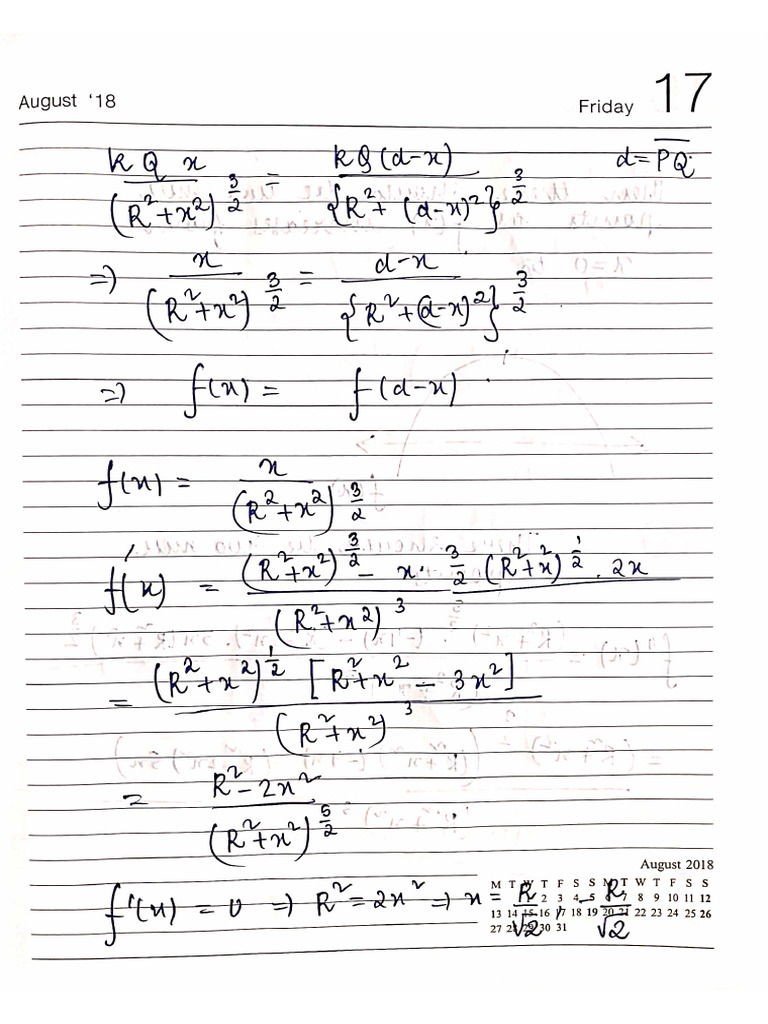 August '18 Friday 17
k Q x / (R² + x²)^3/2 = k Q (d-x) / {R² + (d-x)²}^3/2 d = PQ
=) x / (R² + x²)^3/2 = d-x / {R² + (d-x)²}^3/2
=) f(x) = f(d-x)
f(x) = x / (R² + x²)^3/2
f'(x) = (R² + x²)^3/2 - x · 3/2 (R² + x²)^1/2 . 2x / (R² + x²)^3
= (R² + x²)^1/2 [R² + x² - 3x²] / (R² + x²)^3
= R² - 2x² / (R² + x²)^5/2
August 2018
M T W T F S S M T W T F S S
f'(x) = 0 =) R² = 2x² =) x = R/√2, - R/√2
1 2 3 4 5 6 7 8 9 10 11 12
13 14 15 16 17 18 19 20 21 22 23 24 25 26
27 28 29 30 31